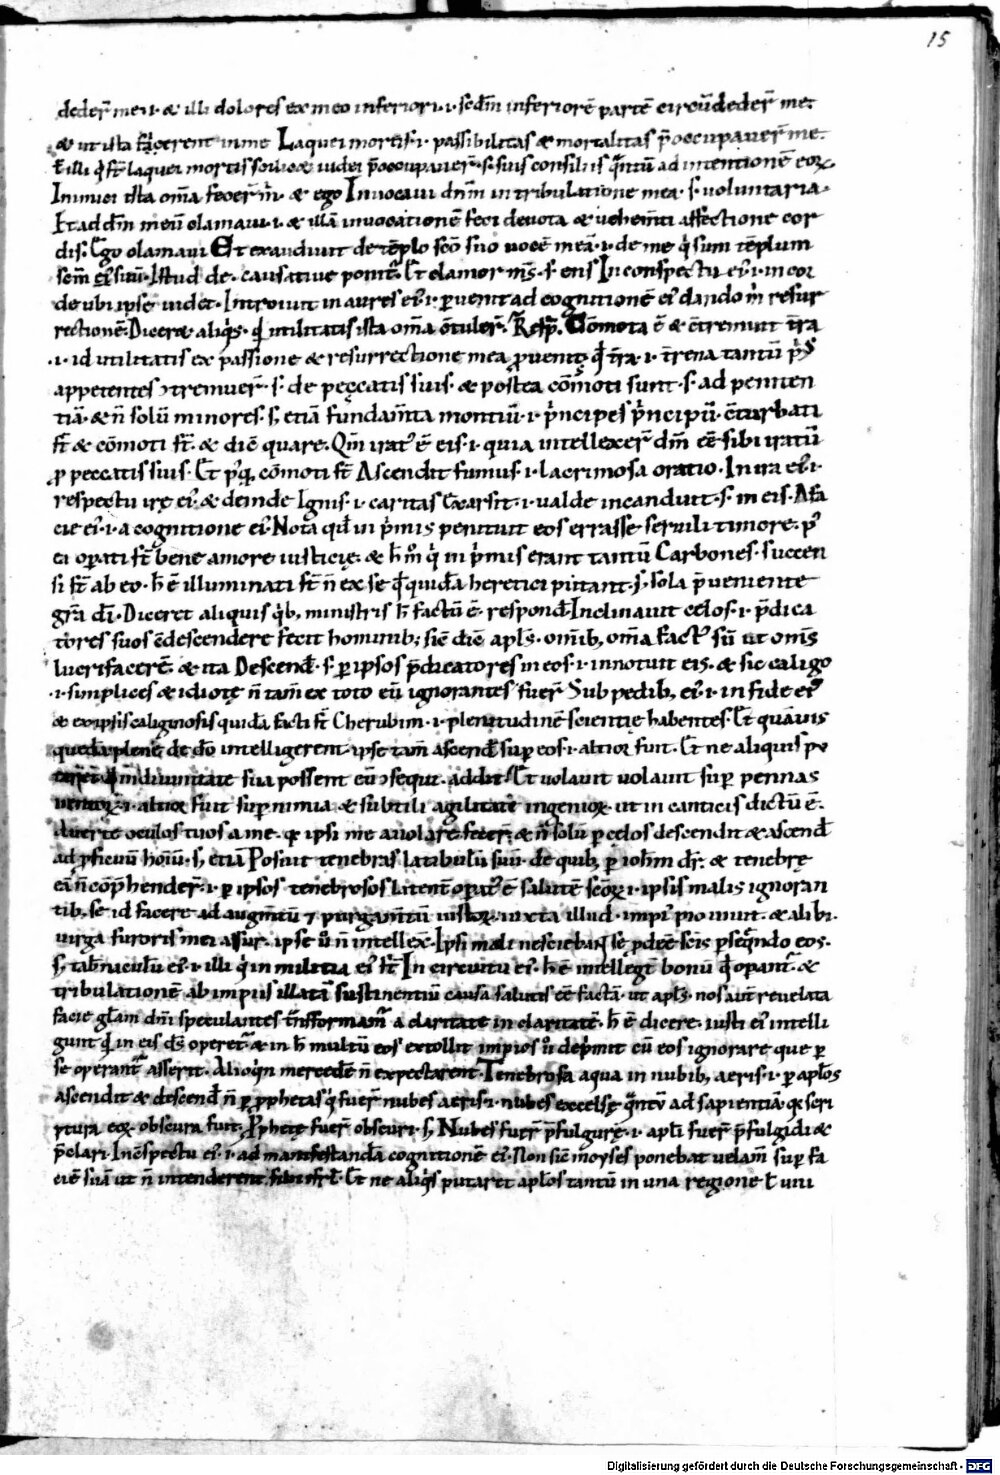 15
dederṝ me·i· & illi dolores ex meo inferiori·i· sc̄dm inferiorē partē circūdederṝ me·
& ut ista facerent in me Laquei mortis·i· passibilitas & mortalitas p̄occupauer̄ me·
laquei mortis iudei p̄occupauer̄·s· suis consiliis q̄ntū ad intentionē eoꝝ
Inimici ista om̄a fecer̄ m̄· & ego Inuocaui dn̄m in tribulatione mea·s· uoluntaria·
Et ad dm̄ meū clamaui·i· & illā inuocationē feci deuota & uehem̄ti affectione cor
dis· Ego clamaui Et exaudiuit de tēplo sc̄o suo uocē meā·i· de me q̇ sum tēplum
sem̄ ei suū· Istud de· causatiue ponit᷑· Et clamor m̄s·s· ens In conspectu ei᷑·i· in cor
de ubi ipse uidet· Introiuit in aures ei᷑·i· puenit ad cognitionē ei᷑ dando m̄ resur
rectionē· Diceret aliq̇s· qd̄ utilitatis ista om̄a ɔ̄tuler̄· Resp̄· Cōmota ē & ɔ̄tremuit t̄ra
·i· id utilitatis ex passione & resurrectione mea ꝓuenit qd̄ t̄ra·i· t̄rena tantū p̄s
appetentes ɔtremuer̄·s· de pęccatis suis· & postea cōmoti sunt·s· ad peniten
tiā· & n̄ solū minores·s; etiā fundam̄ta montiū·i· p̄ncipes p̄ncipū· ɔ̄turbati
st̄ & cōmoti st̄· & dic̄ quare· Qm̄ irat᷑ ē eis·i· quia intellexer̄ dm̄ ēē sibi iratū
ꝓ peccatis suis· Et p̄q cōmoti st̄ Ascendit fumus·i· lacrimosa oratio· In ira ei᷑·i·
respectu irę ei᷑· & deinde Ignis·i· caritas Exarsit·i· ualde incanduit·s· in eis· A fa
cie ei᷑·i· a cognitione ei᷑ Nota qd̄ in p̄mis penituit eos errasse seruili timore· p᷑
ea oꝑati st̄ bene amore iusticię· & h̄ m̊ q̇ in p̄mis erant tantū Carbones· succen
si st̄ ab eo· h̄ ē illuminati st̄ n̄ ex se qd̄ quidā heretici putant·s; sola p̄ueniente
gr̄a dī· Diceret aliquis q̇b; ministris h̄ factū ē· respond̄· Inclinauit celos·i· p̄dica
tores suos ɔ̄descendere fecit hominib; sic̄ dic̄ apl̄s· om̄ib; om̄a fact᷑ sū ut om̄s
lucrifacerē· & ita Descend̄·s· ꝑ ipsos p̄dicatores in eos·i· innotuit eis· & sic caligo
·i· simplices & idiotę n̄ tam̄ ex toto eū ignorantes fuer̄ Sub pedib; ei᷑·i· in fide ei᷑
& ex ipsis caliginosis quidā facti st̄ Cherubim·i· plenitudinē scientię habentes· Et quāuis
quedā plene de dō intelligerent· ipse tam̄ ascend̄ suꝑ eos·i· altior fuit· Et ne aliquis pu
in diuinitate sua possent eū ɔsequi· addit· Et uolauit uolauit suꝑ pennas
uentoꝝ·i· altior fuit suꝑ nimia & subtili agilitate ingenioꝝ· ut in canticis dictū ē·
Auerte oculos tuos a me· qꝛ ipsi me auolare fecer̄· & n̄ solū ꝑ cęlos descendit & ascend̄
ad ꝓficuū hoīū·s; etiā Posuit tenebras latibulū suū· de quib; ꝑ ioh̄m dr̄· & tenebrę
eā n̄ cōp̄hender̄·i· ꝑ ipsos tenebrosos latent᷑ oꝑat᷑ ē salutē sc̄oꝝ·i· ipsis malis ignoran
tib; se id facere ad augm̄tū ⁊ purgam̄tū iustoꝝ· iuxta illud· impi᷑ pio uiuit· & alibi·
uirga furoris mei assur· ipse ū n̄ intellex̄· Ipsi mali nesciebant se pdēē scīs ꝑseq̄ndo eos·
s; tab̄naculū ei᷑·i· illi q̇ in militia ei᷑ st̄ In circuitu ei᷑· h̄ ē intelleg̃t bonū qd̄ oꝑant᷑· &
tribulationē ab impiis illatā sustinentiū causā salutis ēē factā· ut apl̄s· nos aut̄ reuelata
facie gl̄am dn̄i speculantes t̄nsformam᷑ a claritate in claritatē· h̄ ē dicere· iusti ei᷑ intelli
gunt qd̄ in eis ds̄ operet᷑· & in h̄ multū eos extollit impios ū dep̄mit cū eos ignorare que ꝑ
se operant᷑ asserit· Alioq̇n mercedē n̄ expectarent· Tenebrosa aqua in nubib; aeris·i· ꝑ apl̄os
ascendit & descend̄ n̄ ꝑ ꝓphetas q̇ fuer̄ nubes aeris·i· nubes excelsę q̄ntū ad sapientiā· qꝛ scri
ptura eoꝝ obscura fuit· Ꝓphetę fuer̄ obscuri·s; Nubes fuer̄ p̄fulgurę·i· apl̄i fuer̄ p̄fulgidi &
p̄clari· In ɔ̄spectu ei᷑·i· ad manifestandā cognitionē ei᷑· Non sic̄ moyses ponebat uelam̄ suꝑ fa
ciē suā ut n̄ intenderent filii isrl̄· Et ne aliq̇s putaret apl̄os tantū in una regione ł uni
Digitalisierung gefördert durch die Deutsche Forschungsgemeinschaft - DFG